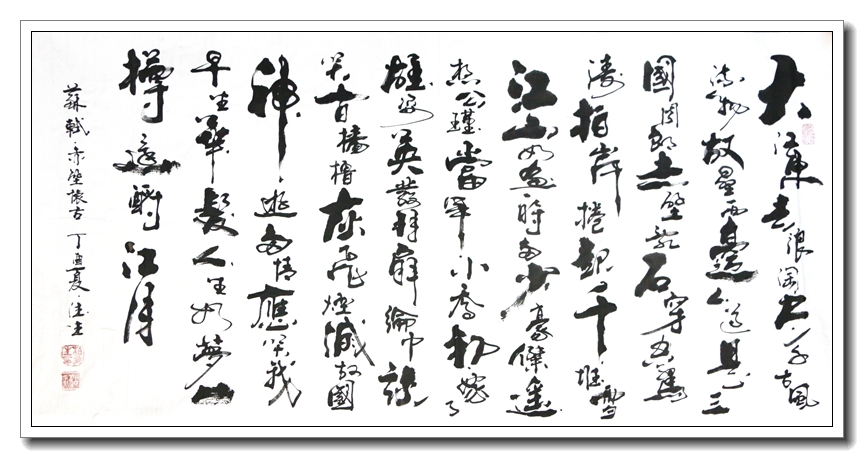 大江東去浪淘盡千古風
流物故壘西邊人道是三
國周郎赤壁亂石穿空驚
濤拍岸捲起千堆雪
江山如畫時多少豪傑遙
想公瑾當年小喬初嫁了
雄姿英發羽扇綸巾談
笑間檣櫓灰飛煙滅故國
神遊多情應笑我
早生華髮人生如夢一
樽還酹江月
蘇軾·赤壁懷古 丁亥夏